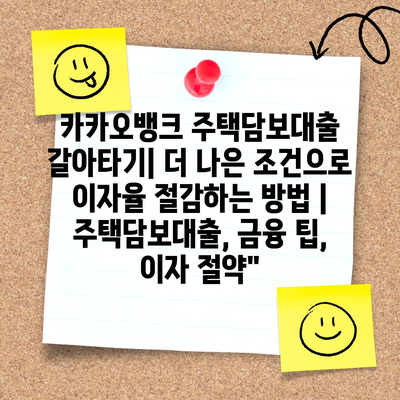 카카오뱅크 주택담보대출
갈아타기| 더 나은 조건으로
이자율 절감하는 방법 |
주택담보대출, 금융 팁,
이자 절약"